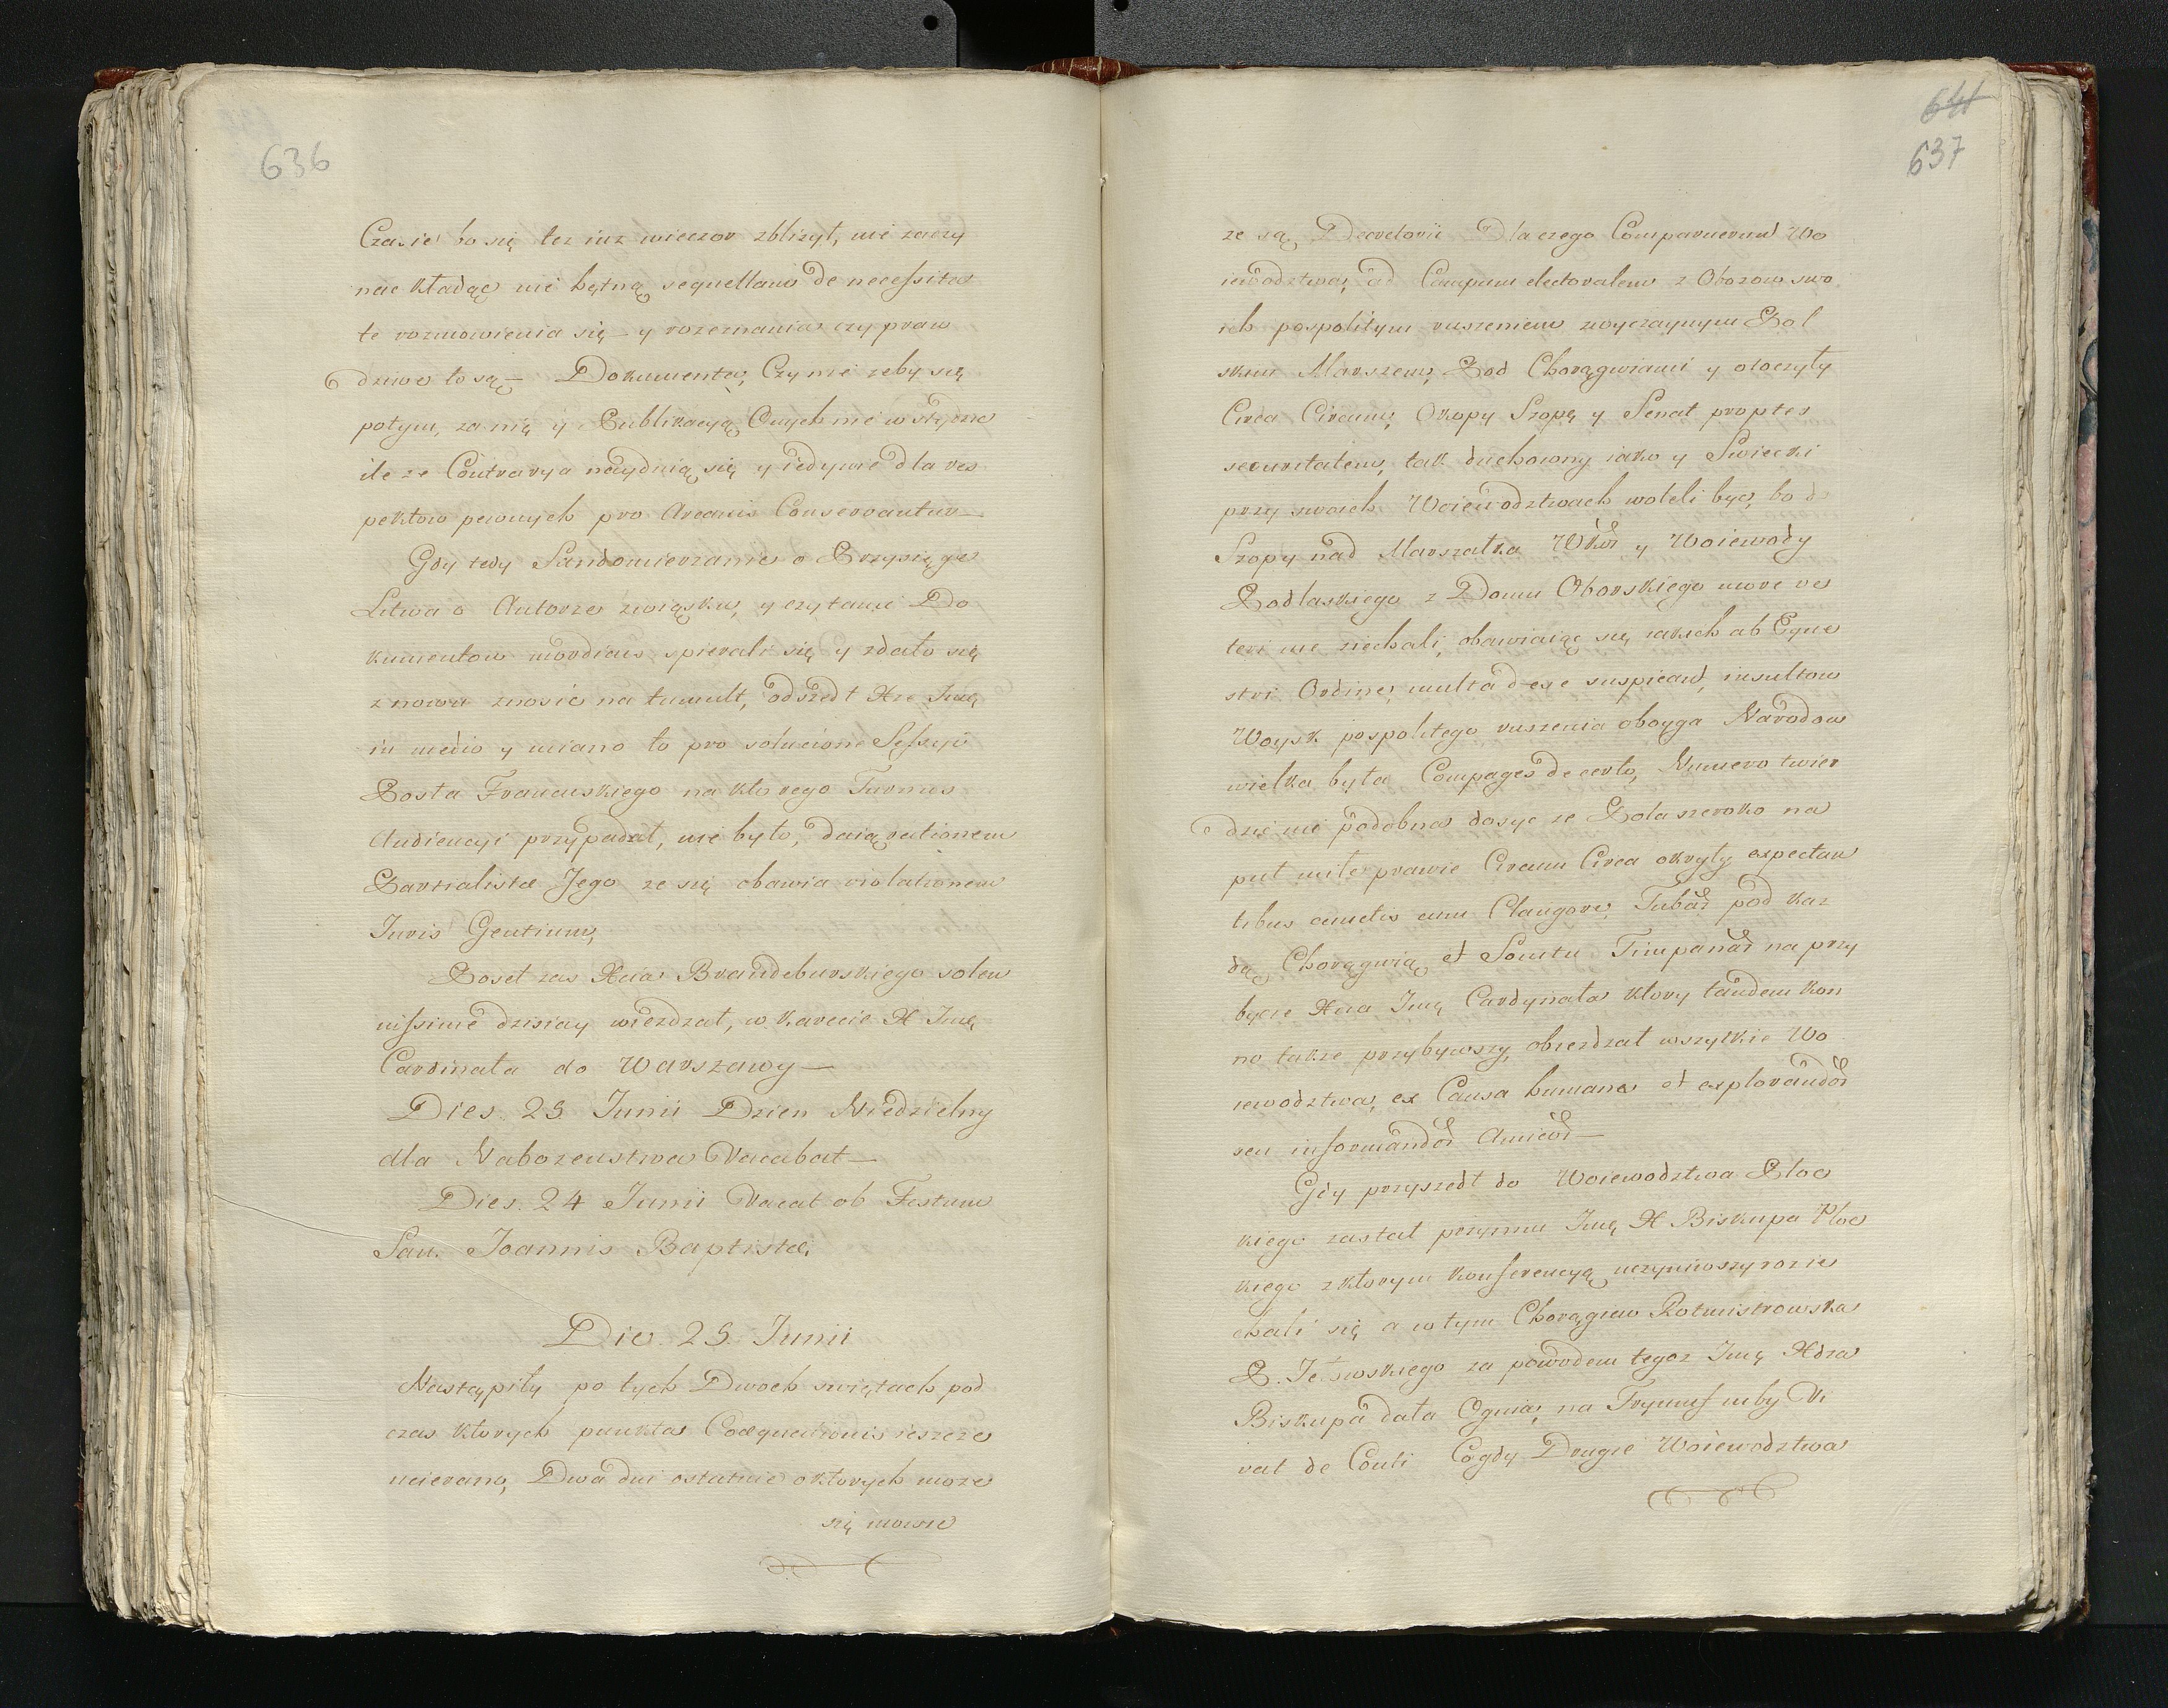 636
Czasie bo się tez iuz wieczor zblizył, nie zaczy
nac kładąc nie chętną sequellam de necessita
te rozmowienia się y rozeznania czy praw
dziwe to są — Dokumenta, Czy nie zeby się
potym, za nię y Publikacyą Onych nie wstydne
ile ze Contrarya naydują się y iedynie dla res
pektow pewnych pro Arcanis Conservantur —
Gdy tedy Sandomierzanie o Przysięge
Litwa o Autorze związku, y czytanie Do
kumentow mordicus spierali się y zdało się
znowu znosic na tumult, odszedł Xze Jmę
in medio y miano to pro solucione Sessyi
Posła Francuskiego na ktorego Turnus
Audiencyi przypadał, nie było, daią rationem
Partialistæ Jego ze się obawia violationem
Juris Gentium,
Poseł zas Xcia Brandeburskiego solen
nissime dzisiay wiezdzał, w karecie X Jmę
Cardinała do Warszawy —
Dies. 23 Junii Dzien Niedzielny
dla Nabozenstwa Vacabat —
Dies. 24 Junii Vacat ob Festum
San. Joannis Baptistæ,
Die. 25. Junii
Nastąpiły po tych Dwoch swiętach pod
czas ktorych punkta Coæquationis ieszcze
ucierano, Dwa dni ostatnie o ktorych moze
się mowic
641
637
ze są Decretorii Dla czego Comparuerunt Wo
iewodztwa, ad Campum electoralem z Obozow swo
ich pospolitym ruszeniem zwyczaynym Pol
skim Marszem, Pod Chorągwiami y otoczyły
Circa Circum, Okopy Szopę y Senat propter
securitatem, tak duchowny iako y Swiecki
przy swoich Woiewodztwach woleli byc, bo do
Szopy nad Marszałka WKor y Woiewody
Podlaskiego z Domu Oborskiego more ve
teri nie ziechali, obawiaiąc się iakich ab Eque
stri Ordine, multa de se suspicant, insultow
Woysk pospolitego ruszenia oboyga Narodow
wielka była Compages de certo, Numero twier
dzic nie podobna dosyc ze Pola szeroko na
puł mile prawie Circum Circa okryły expectan
tibus cunctis cum Clangore, Tubar pod kaz
dą Chorągwią et Sonitu Timpanar na przy
bycie Xcia Jmę Cardynała ktory tandem kon
no takze przybywszy, obiezdzał wszytkie Wo
iewodztwa, ex Causa humana et explorandor
seu informandor Amicor —
Gdy przyszedł do Woiewodztwa Płoc
kiego zastał przy nim Jmę X Biskupa Płoc
kiego z ktorym konferencyą uczyniwszy rozie
chali się a wtym Chorągiew Rotmistrowska
P. za powodem tegoz Jmę Xdza
Biskupa dała Ognia, na Tryumf niby Vi
vat de Conti Co gdy Drugie Woiewodztwa